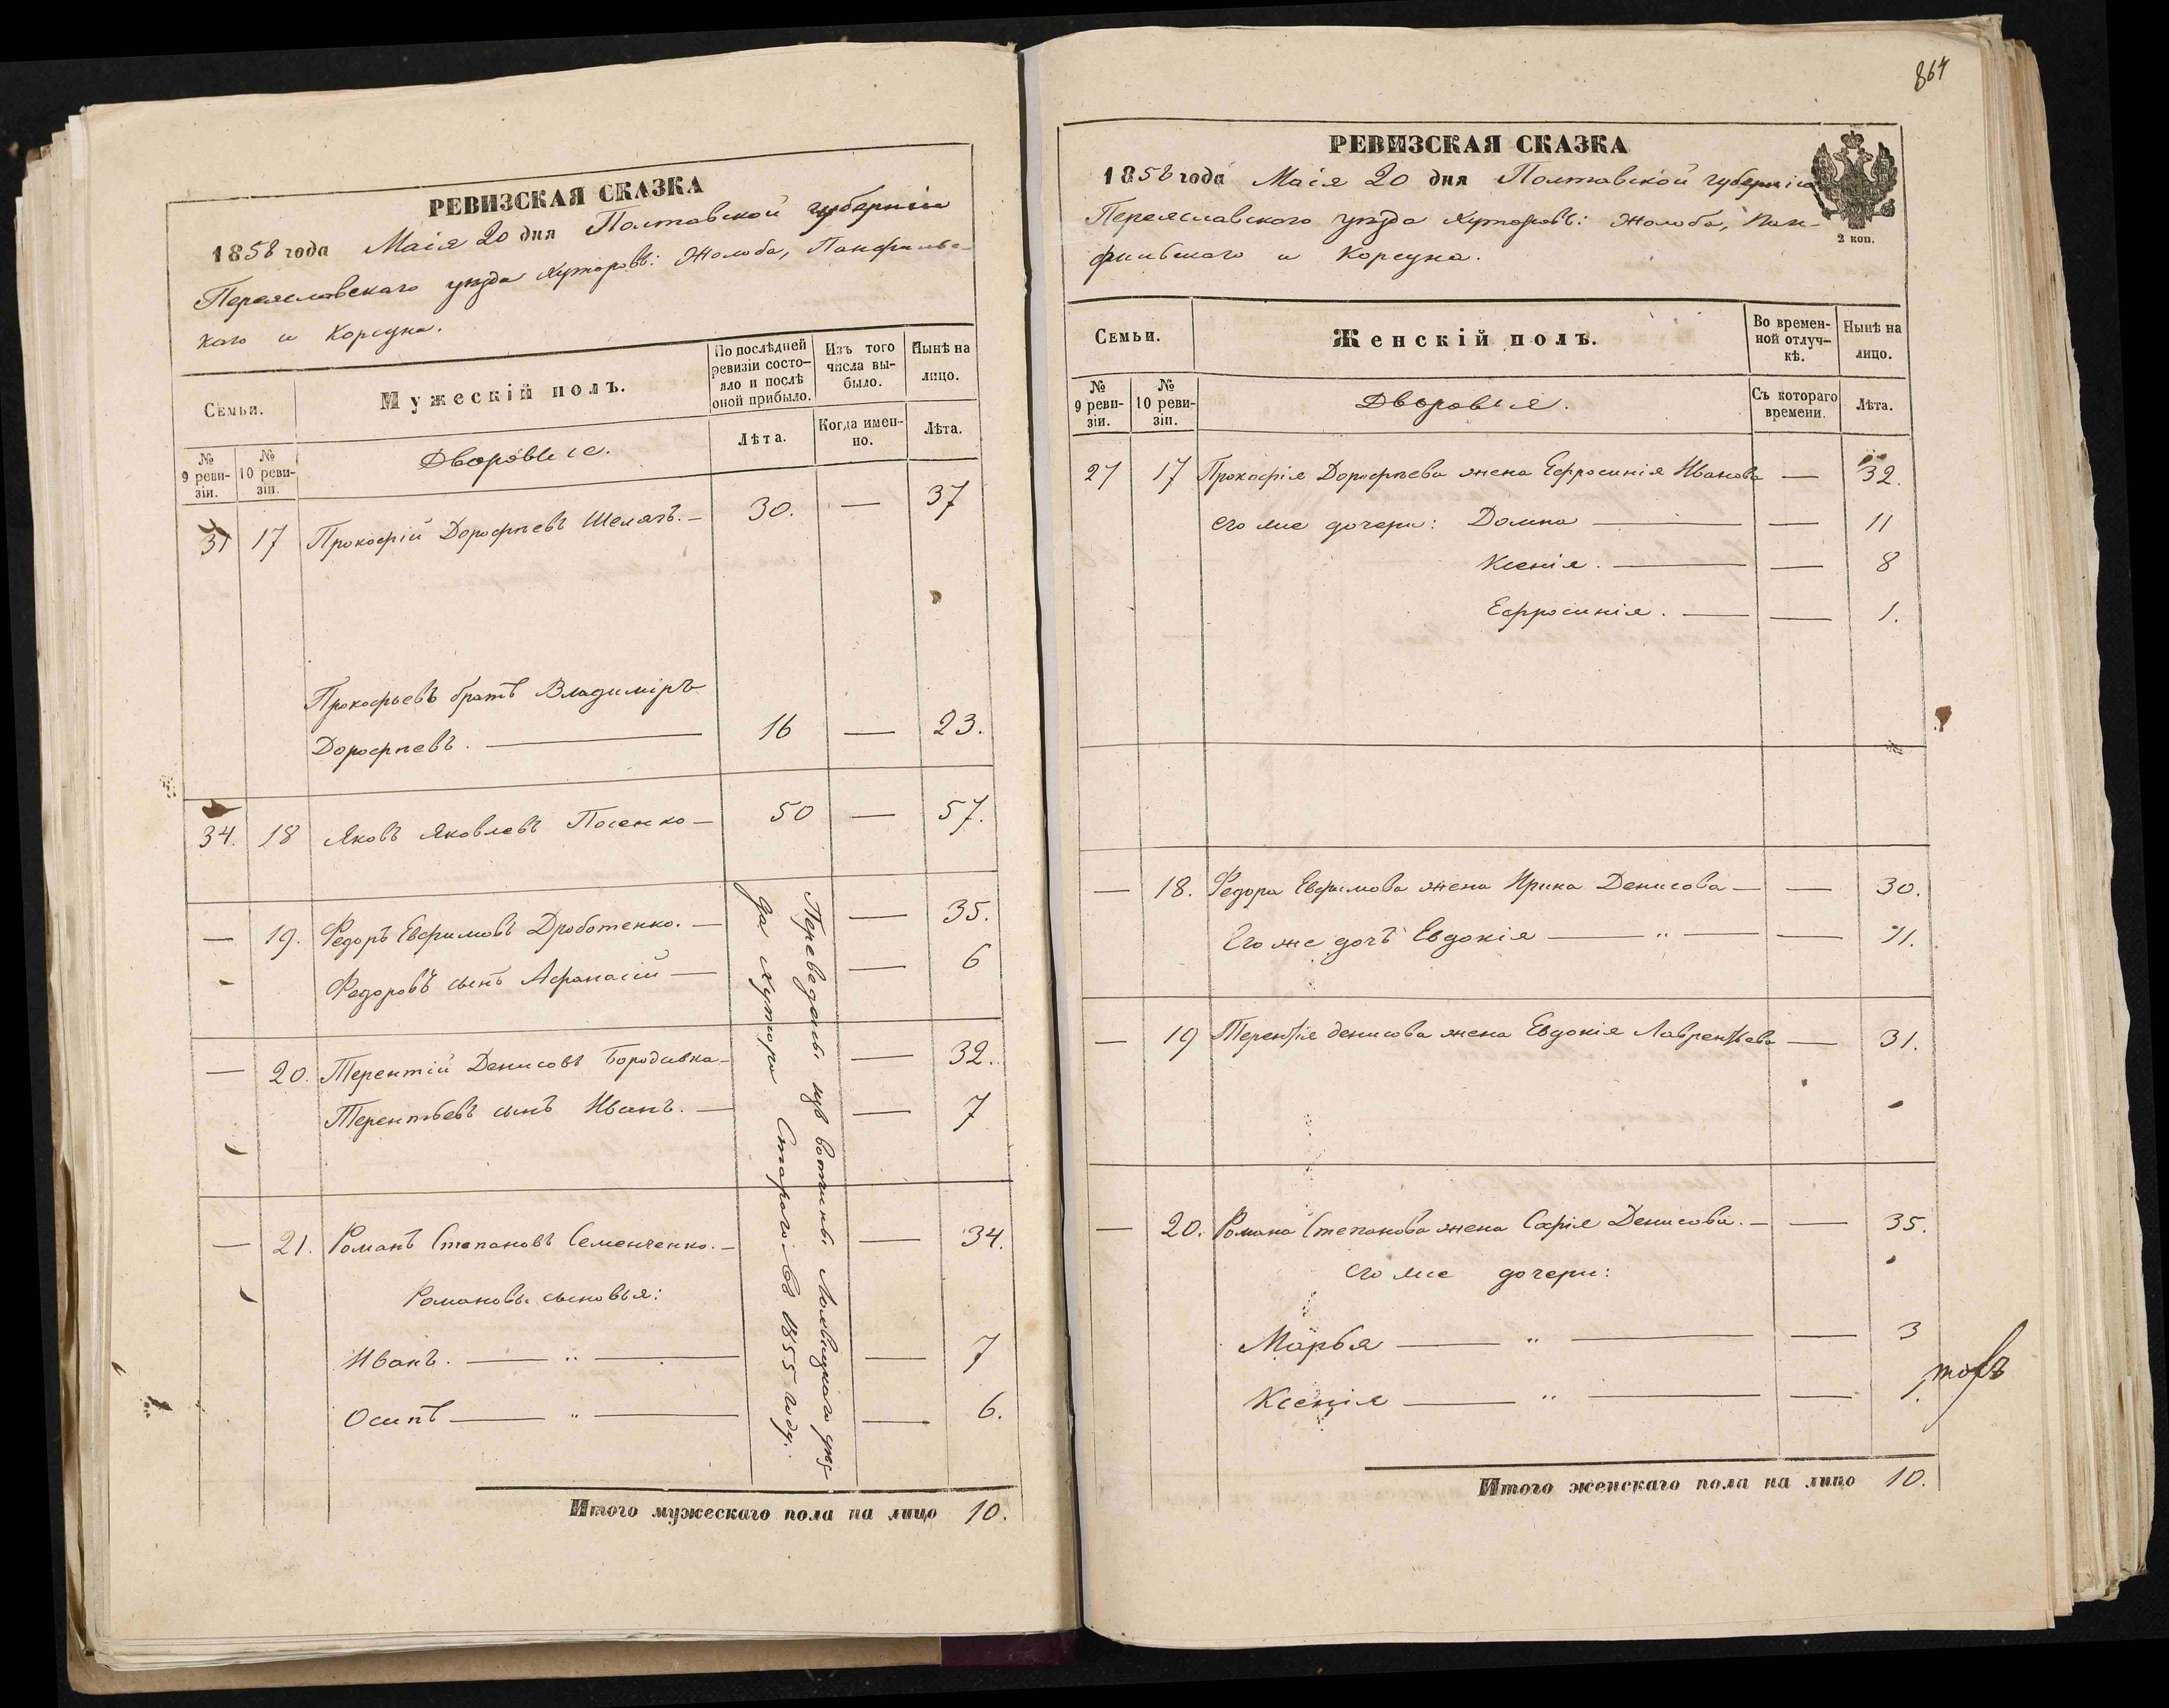 РЕВИЗСКАЯ СКАЗКА
1858 года Маія 20 дня Полтавской губерніи
Переяславскаго уѣзда хуторовъ: Жолоба, Панфильс-
каго и Корсуна.
Семьи.
Мужескій полъ.
По послѣдней ревизіи состояло и послѣ оной прибыло.
Изъ того числа выбыло.
Нынѣ на лицо.
№ 9 ревизіи.
№ 10 ревизіи.
Дворовые.
Лѣта.
Когда именно.
Лѣта.
31 17 Прокофій Дорофѣевъ — 30. — 37
Прокофьевъ братъ Владиміръ
Дорофѣевъ. — 16 — 23.
34. 18 Яковъ Яковлевъ — 50 — 57.
— 19. Федоръ Евфимовъ Дроботенко. — — 35.
Федоровъ сынъ Афанасій — — 6
— 20. Терентій Денисовъ Бородавка — — 32.
Терентьевъ сынъ Иванъ. — — 7
— 21. Романъ Степановъ Семенченко. — — 34.
Романовы сыновья:
Иванъ. — „ — — 7
Осипъ — „ — — 6.
Переведены изъ вотчины уѣз-
да хутора Стараго въ 1855 году.
Итого мужескаго пола на лицо 10.
864
РЕВИЗСКАЯ СКАЗКА
1858 года Маія 20 дня Полтавской губерніи
Переяславского уѣзда хуторовъ: Жолоба, Пан-
фильскаго и Корсуна.
2 коп.
Семьи.
Женскій полъ.
Во временной отлучкѣ.
Нынѣ на лицо.
№ 9 ревизіи.
№ 10 ревизіи.
Дворовыя.
Съ котораго времени.
Лѣта.
27 17 Прокофія Дорофѣева жена Ефросинія Иванова — 32.
его же дочери: Домна — — 11
Ксенія. — — 8
Ефросинія. — — 1.
— 18. Федора Евфимова жена Ирина Денисова — — 30.
Его же дочь Евдокія — „ — — 11.
— 19 Терентія Денисова жена Евдокія Лаврентьева — 31.
— 20. Романа Степанова жена Софія Денисова. — — 35.
его же дочери:
Марья — „ — — 3
Ксенія — „ — — 1.
Итого женскаго пола на лицо 10.